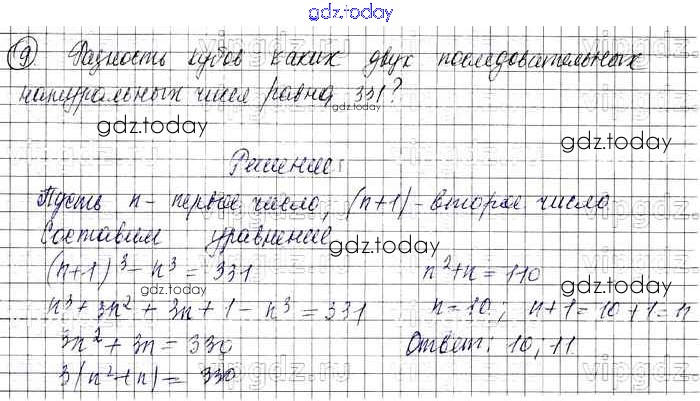 gdz.today
9 Разность кубов каких двух последовательных
натуральных чисел равна 331?
gdz.today
gdz.today
gdz.today
Решение:
Пусть n - первое число, (n+1) - второе число
Составим уравнение
gdz.today
(n+1)³ - n³ = 331
gdz.today
n³ + 3n² + 3n + 1 - n³ = 331
3n² + 3n = 330
3(n² + n) = 330
n² + n = 110
gdz.today
n = 10; n+1 = 10+1 = 11
Ответ: 10; 11
gdz.today
vipgdz.ru